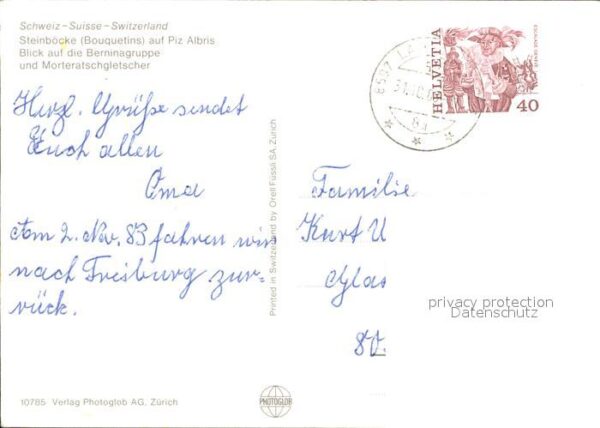 Schweiz – Suisse – Switzerland
Steinböcke (Bouquetins) auf Piz Albris
Blick auf die Berninagruppe
und Morteratschgletscher
Herzl. Grüße sendet
Euch allen
Oma
Am 2. Nov. 83 fahren wir
nach Freiburg zur-
rück.
10785 Verlag Photoglob AG, Zürich
Printed in Switzerland by Orell Füssli SA, Zürich
PHOTOGLOB
HELVETIA
ESCALADE GENÈVE
40
31.10.
Familie
Kurt U
Glas
privacy protection
Datenschutz